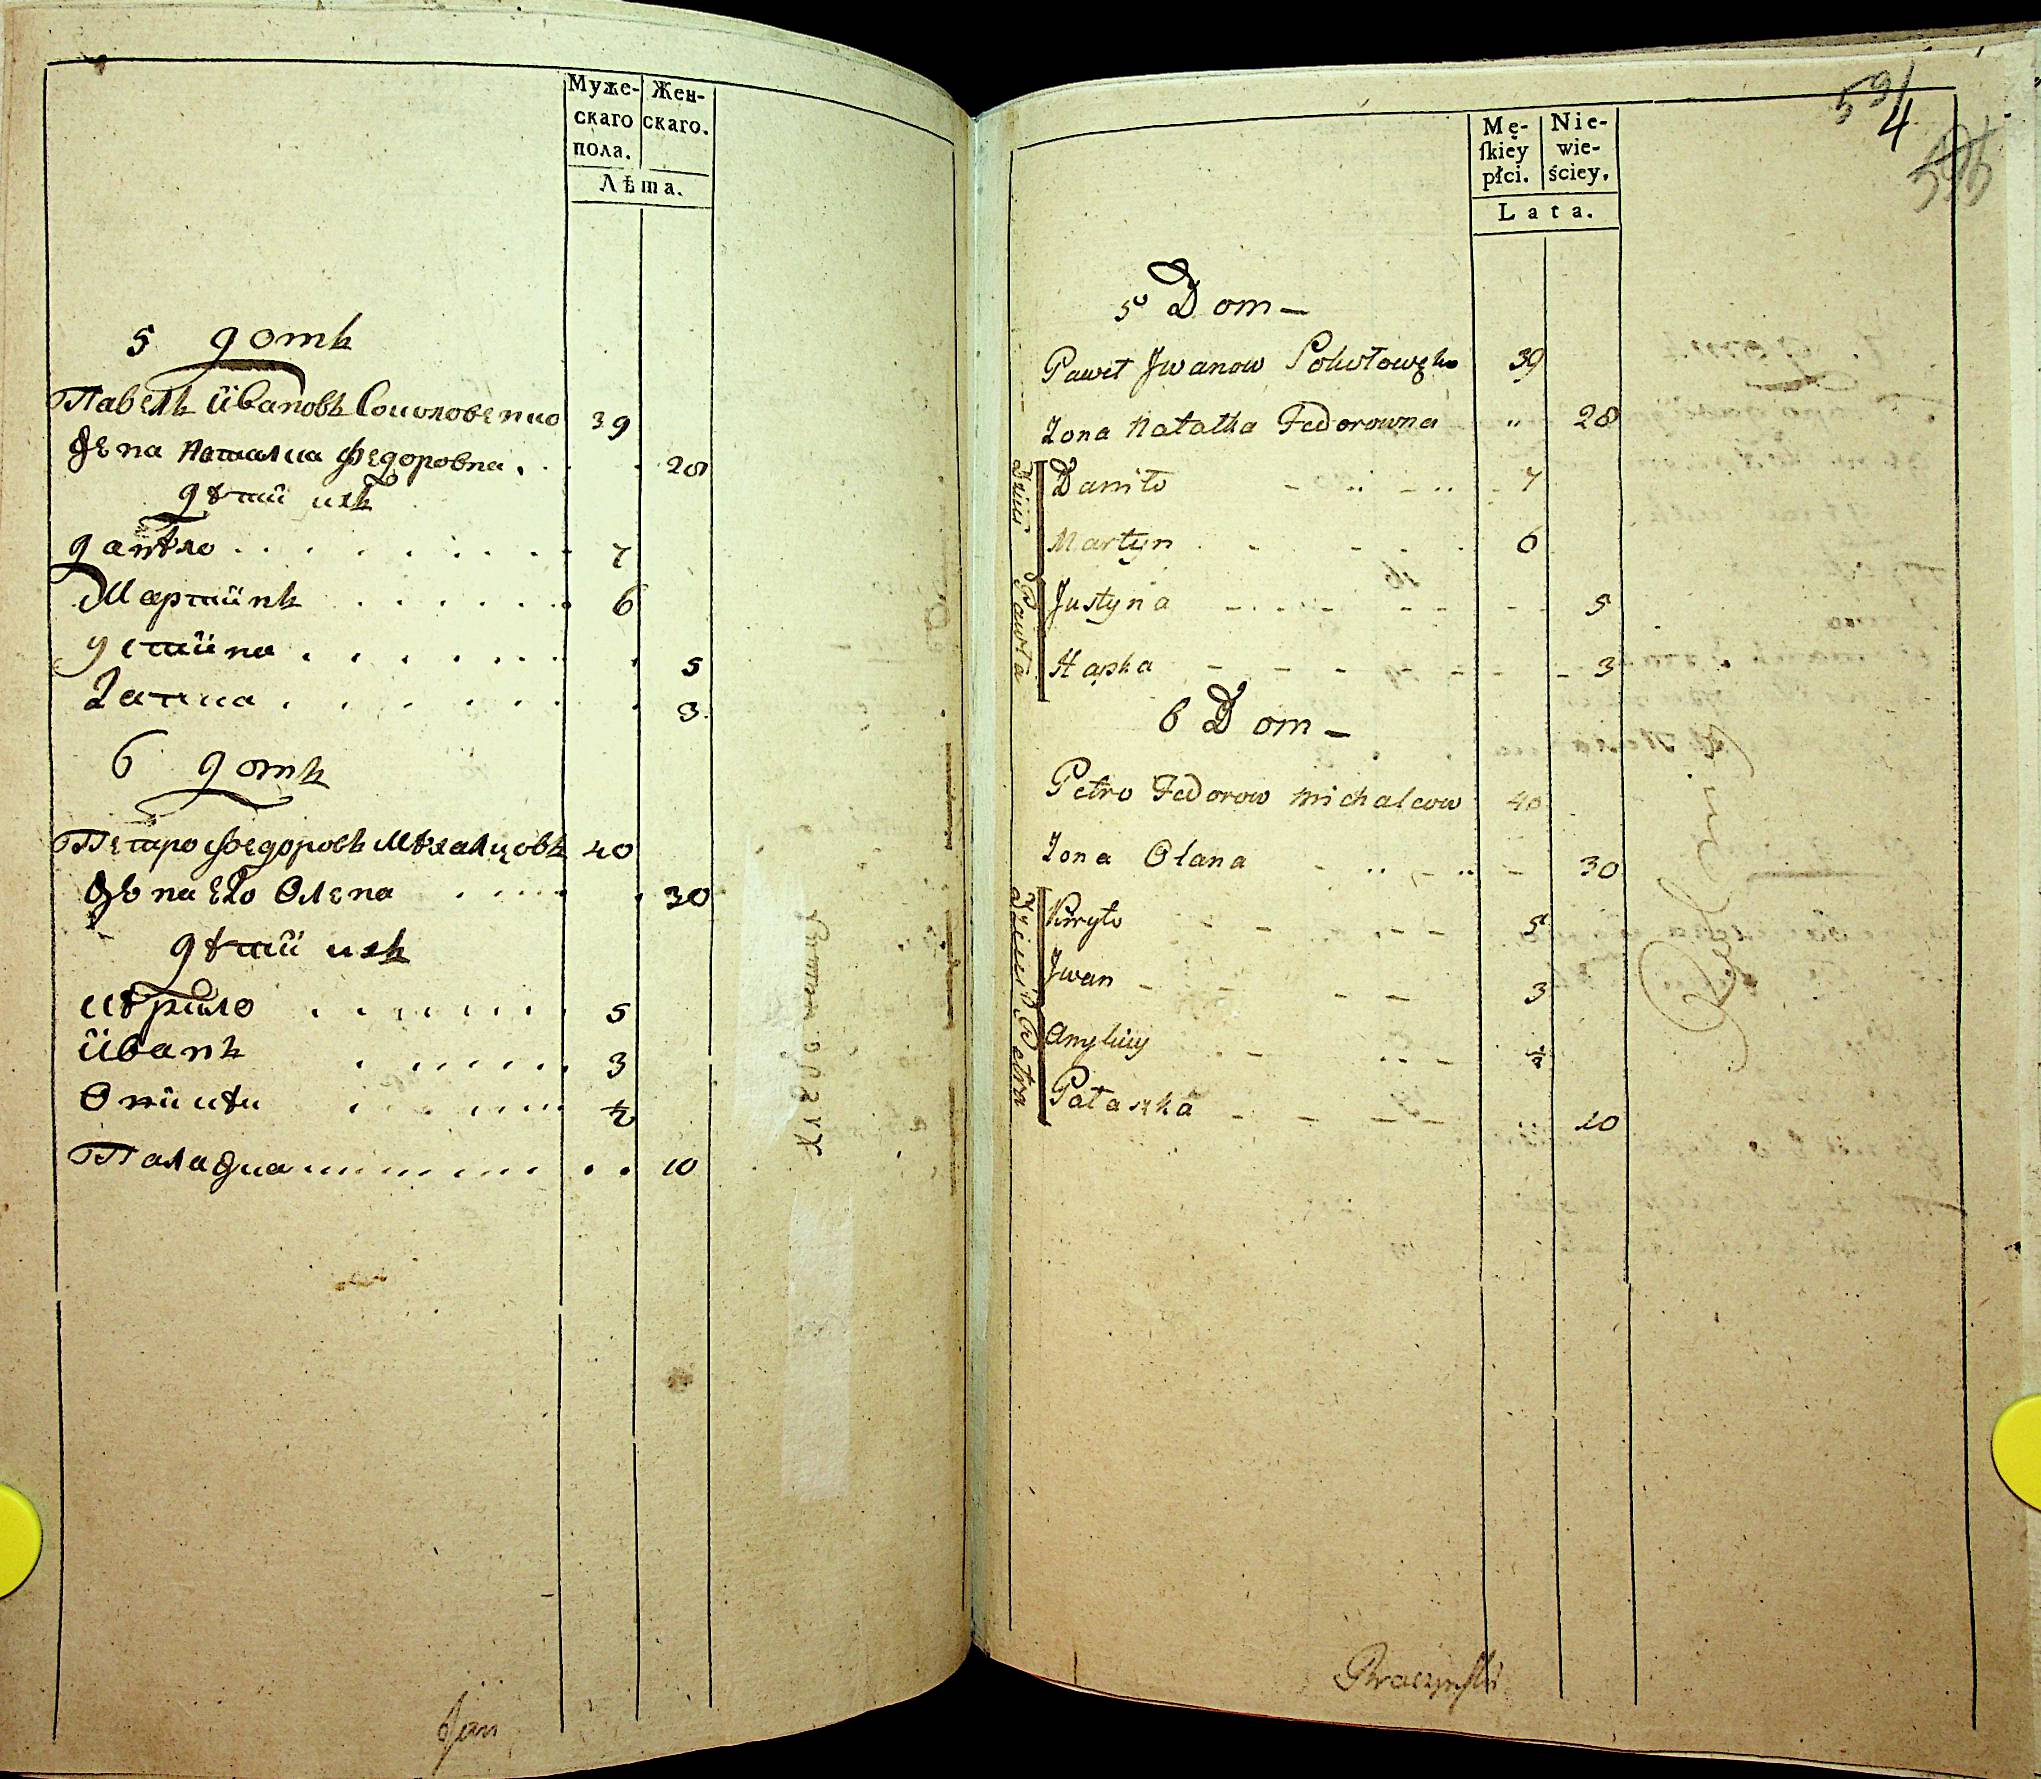 Муже-
скаго
пола.
Жен-
скаго.
Лѣта.
5 домъ
Павелъ Ивановъ Соколовенко 39
Жена Наталиа Федоровна . . . 28
дѣти ихъ
данѣло . . . . . . . . . 7
Мартинъ . . . . . . 6
Устина . . . . . . . . 5
Гапка . . . . . . . 3
6 домъ
Петро Федоровъ Мѣхалцовъ 40
Жена его Олена . . . . . 30
дѣти ихъ
кѣрило . . . . . . . 5
Иванъ . . . . . . . 3
Оникѣи . . . . . . . ½
Палажка . . . . . . . . 10
Jan
59/
4
Mę-
ſkiey
płci.
Nie-
wie-
ściey.
Lata.
5 Dom –
Paweł Jwanow 39
Żona Natalka Fedorowna „ 28
Dzieci Pawła
Daniło - „ - „ - 7
Martyn . - - . . 6
Justyna - . . . - - - - 5
Hapka - - - - - - - - 3
6 Dom –
Petro Fedorow Michalcow 40
Żona Olana - „ - „ - 30
Dzieci Petra
Kiryło - - . . - - 5
Jwan - - - - 3
. - . . - ½
Pałaszka - - - - „ 10